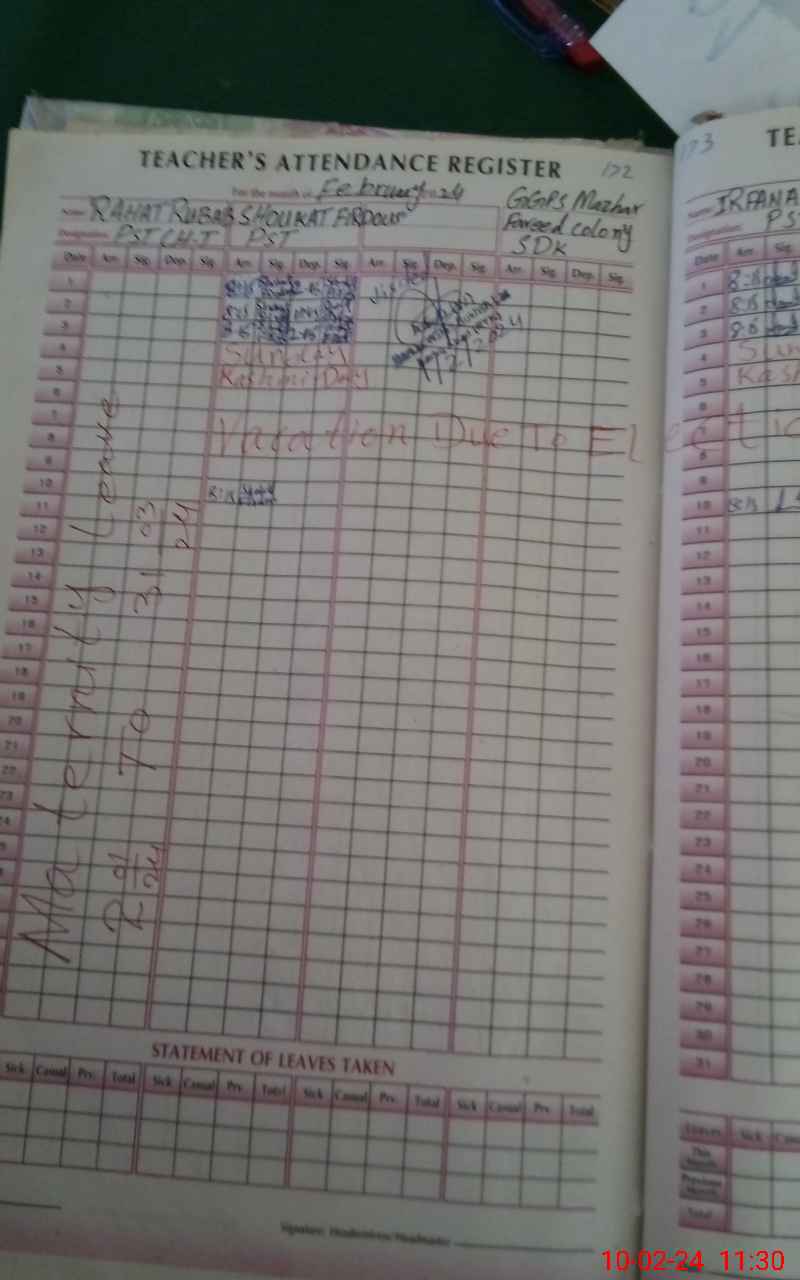 172
TEACHER'S ATTENDANCE REGISTER
For the month of February 24
GGPS Mazhar
Fareed colony
SDK
Name RAHAT RUBAB SHOUKAT FIRDOUS
Designation PST CH-T PST
Date Arr. Sig. Dep. Sig. Arr. Sig. Dep. Sig. Arr. Sig. Dep. Sig. Arr. Sig. Dep. Sig.
1 8:15
2 8:15
3 8:15
1/2/2024
4 Sunday
5 Kashmir Day
6
7
8 Vacation Due To Election
9
10 8:15
11
12
13
14
15
16
17
18
19
20
21
22
23
24
Maternity Leave
2 01/24 To 31 03/24
STATEMENT OF LEAVES TAKEN
Sick Casual Prv. Total Sick Casual Prv. Total Sick Casual Prv. Total Sick Casual Prv. Total
Signature Headmistress/Headmaster
173
TE
Name IRFANA
Designation PS
Date Arr. Sig.
1 8:15
2 8:15
3 8:15
4 Sun
5 Kash
6
7
8
9
10 8:15
11
12
13
14
15
16
17
18
19
20
21
22
23
24
25
26
27
28
29
30
31
Leaves Sick Cas
This Month
Previous Month
Total
10-02-24 11:30